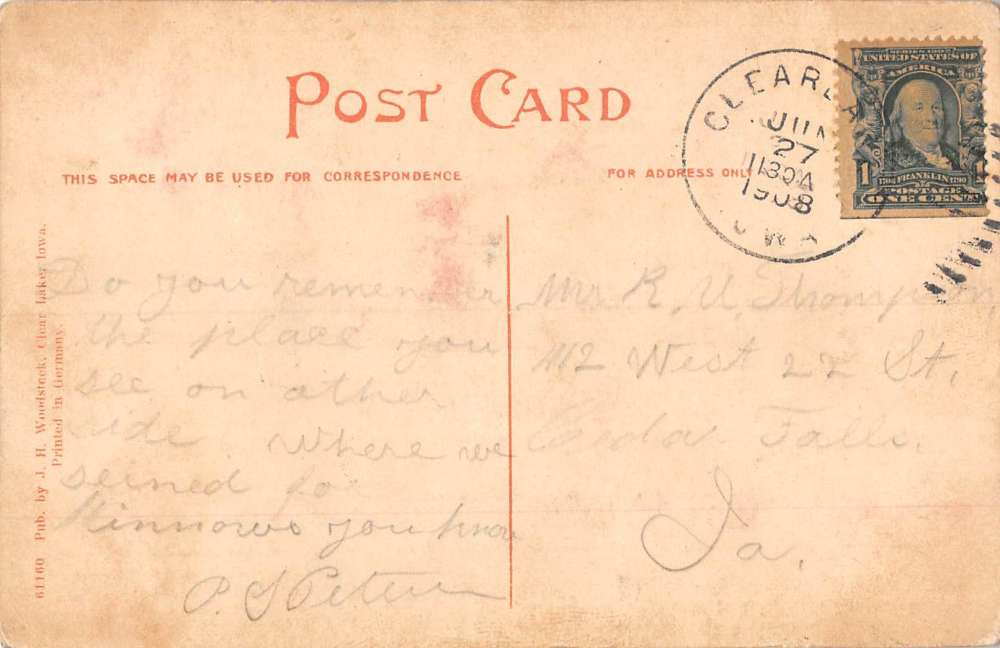 POST CARD
THIS SPACE MAY BE USED FOR CORRESPONDENCE
FOR ADDRESS ONLY
CLEAR LA
JUN
27
1130A
1908
IOWA
SERIES 1902
UNITED STATES OF
AMERICA
1
1706 FRANKLIN 1790
POSTAGE
ONE CENT
61160 Pub. by J. H. Woodstock, Clear Lake, Iowa.
Printed in Germany.
Do you remember
the place you
see on other
side where we
seined for
Minnows you know
P. S. Peter
Mr. R. U. Thompson,
412 West 22 St,
Cedar Falls,
Ia.